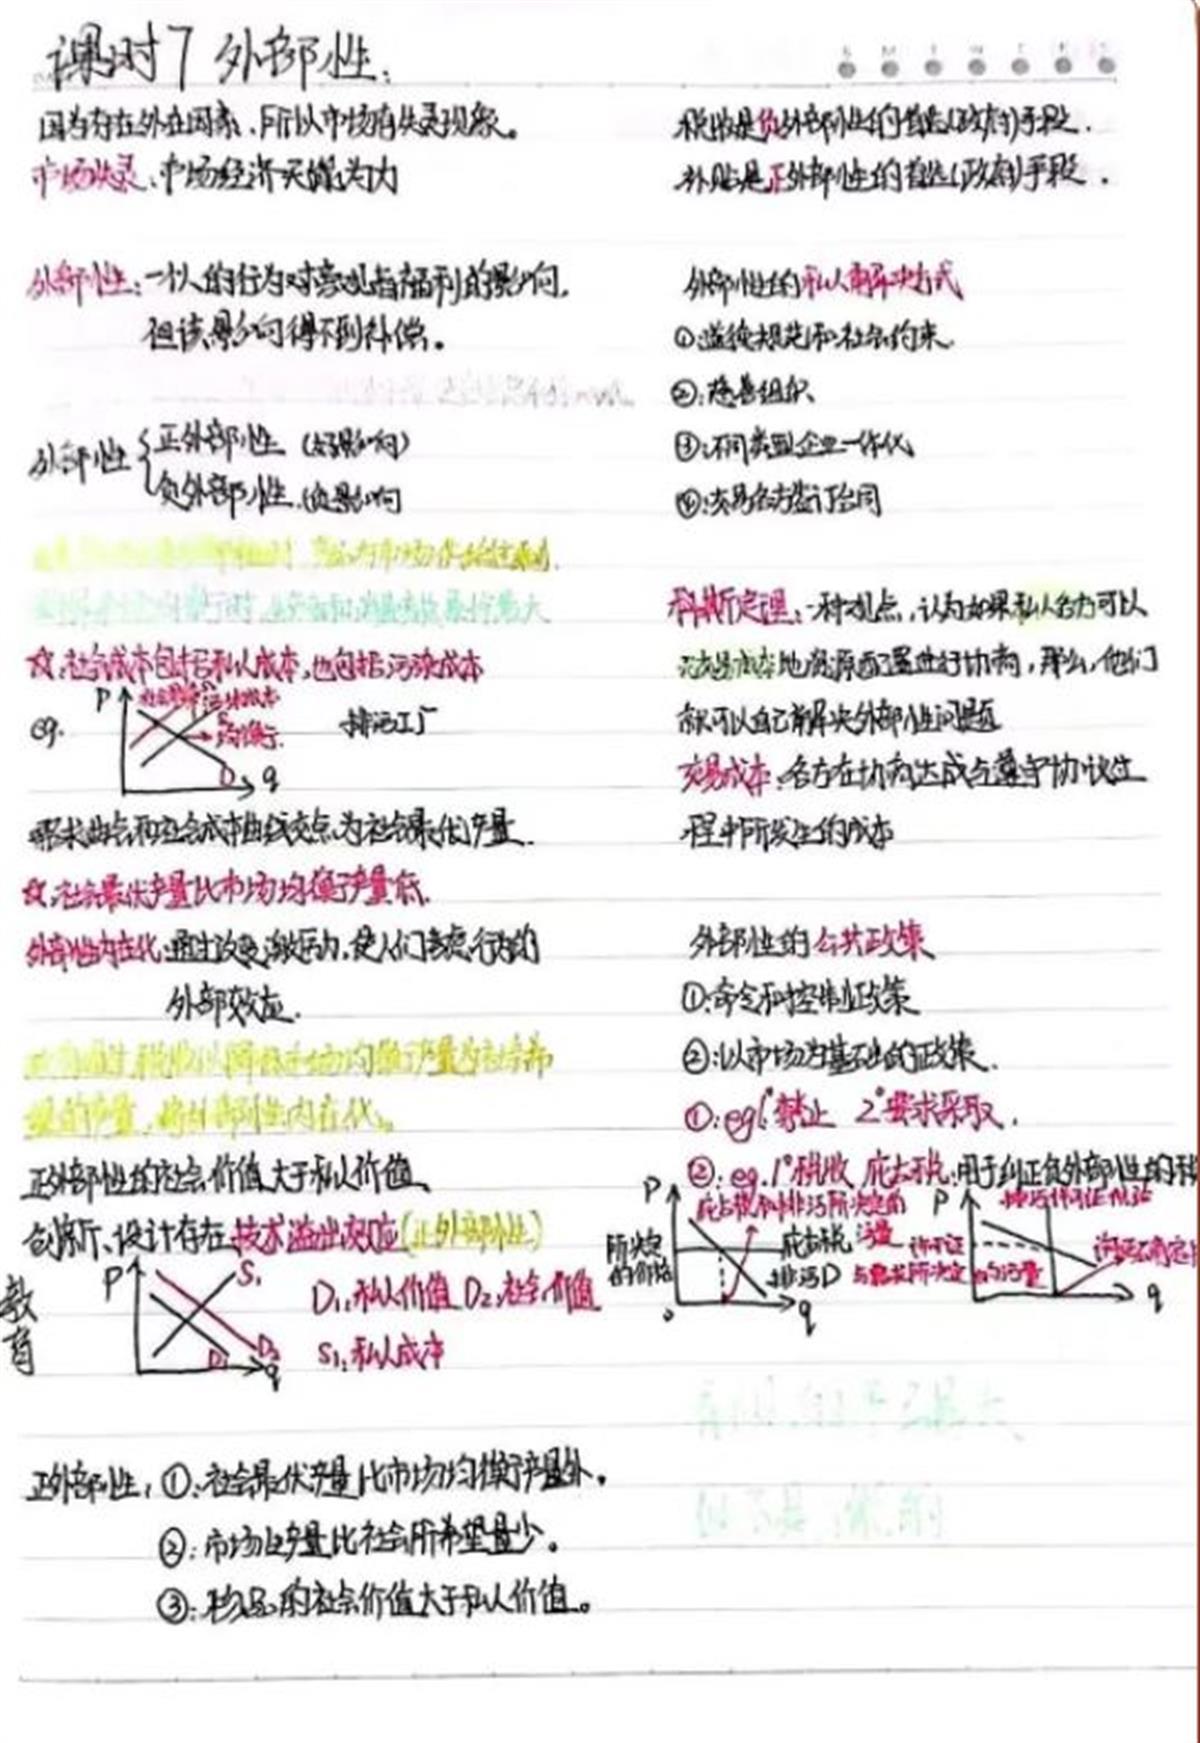 课时7 外部性:
因为存在外在因素、所以市场有失灵现象。
市场失灵:市场经济无能为力
外部性:一个人的行为对旁观者福利的影响,
但该影响得不到补偿。
外部性
正外部性 (好影响)
负外部性 (负影响)
☆:社会成本包括私人成本,也包括污染成本
eg.
P
D
q
排污工厂
需求曲线和社会成本曲线交点为社会最优产量.
☆:社会最优产量比市场均衡产量低.
外部性内在化:通过改变激励,使人们考虑行为的
外部效应.
产量,将外部性内在化。
正外部性的社会价值大于私人价值、
创新、设计存在技术溢出效应(正外部性)
教育
P
S₁
D₁
D₂
q
D₁:私人价值 D₂:社会价值
S₁:私人成本
正外部性:①:社会最优产量比市场均衡产量
②:市场上产量比社会所希望量少。
③:物品的社会价值大于私人价值。
税收是负外部性的首选(政府)手段.
补贴是正外部性的首选(政府)手段.
外部性的私人解决方式
①:道德规范和社会约束.
②:慈善组织、
③:不同类型企业一体化
④:交易各方签订合同
科斯定理:一种观点,认为如果私人各方可以
无交易成本地资源配置进行协商,那么,他们
就可以自己解决外部性问题
交易成本:各方在协商达成与遵守协议过
程中所发生的成本
外部性的公共政策
①:命令和控制政策
②:以市场为基础的政策.
①:eg1°禁止 2°要求采取.
②:eg.1°税收 庇古税:用于纠正负外部性的税
P
庇古税和排污所决定的
所决定的价格
庇古税
污量
排污D
q
P
排污许可证供给
许可证
与需求所决定
的污量
q